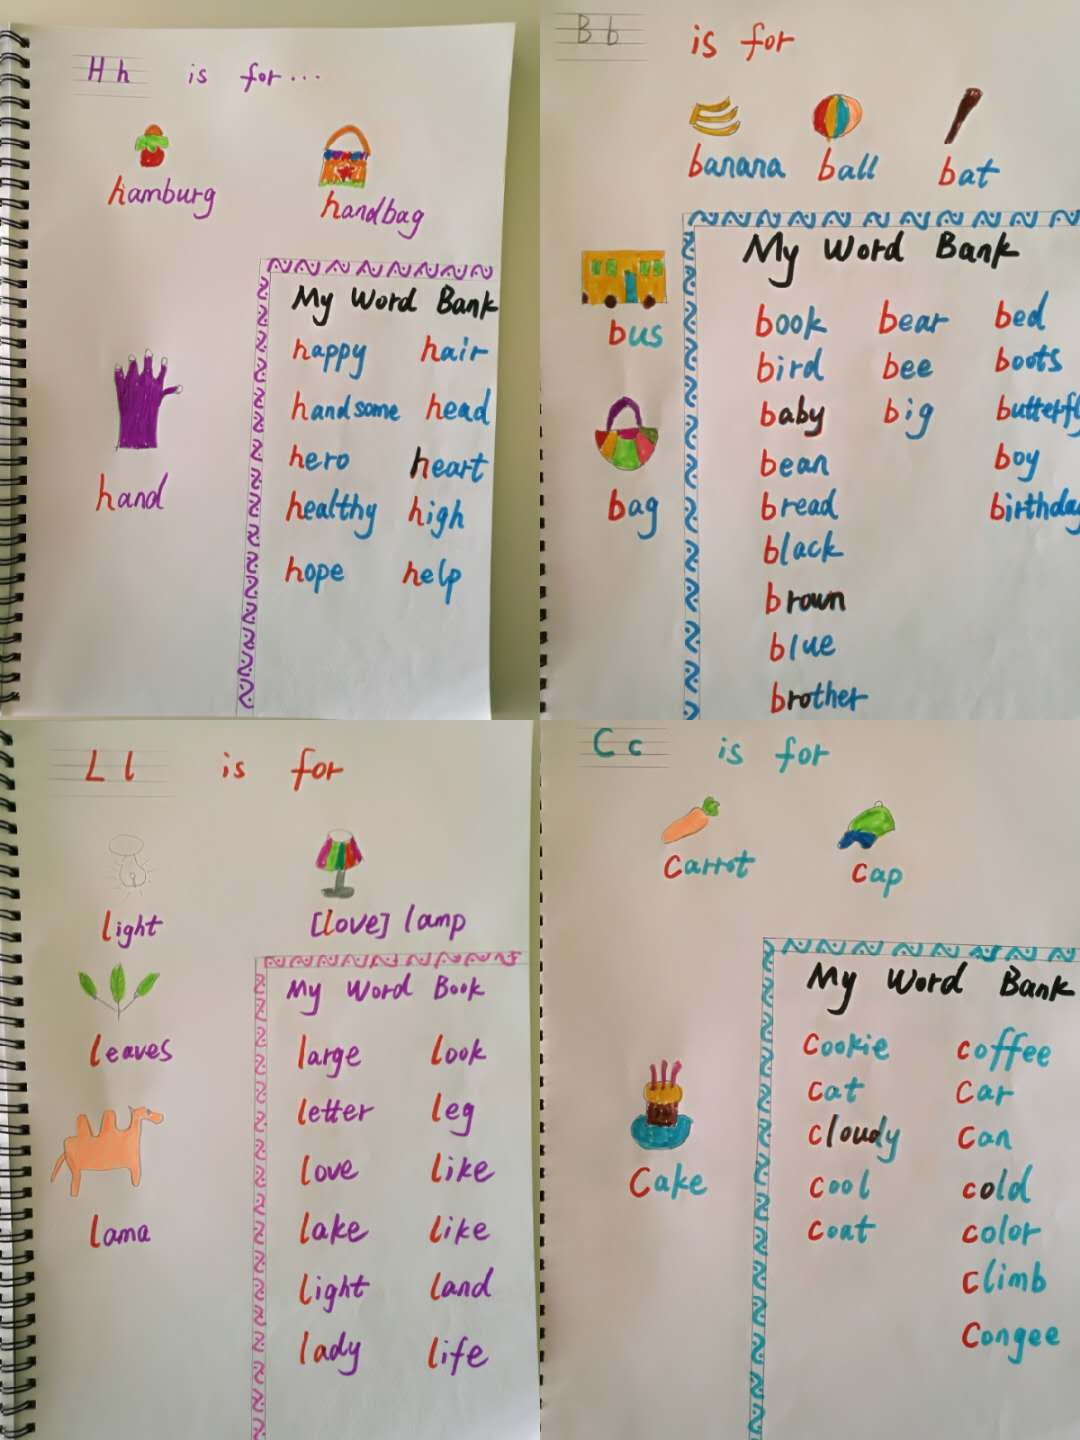 Hh is for...
hamburg handbag
hand
My Word Bank
happy hair
handsome head
hero heart
healthy high
hope help
Bb is for
banana ball bat
bus
bag
My Word Bank
book bear bed
bird bee boots
baby big butterfly
bean boy
bread birthday
black
brown
blue
brother
Ll is for
light [love] lamp
leaves
lama
My Word Book
large look
letter leg
love like
lake like
light land
lady life
Cc is for
carrot cap
Cake
My Word Bank
cookie coffee
cat car
cloudy can
cool cold
coat color
climb
congee